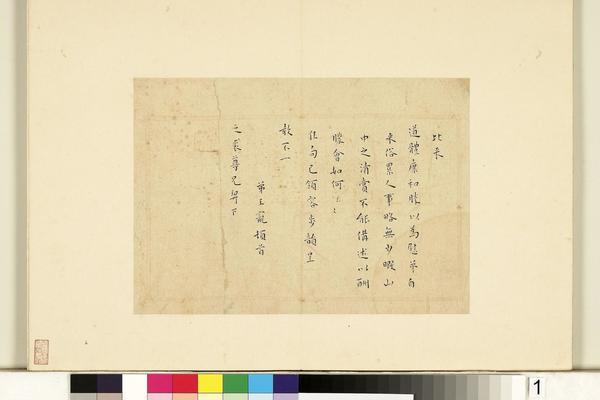 比來
道體康和勝以為慰弟自
來俗累人事略無少暇山
中之清賞不能備述以酬
勝會如何〻〻
佳句已領容步韻呈
教不一
弟王寵頓首
之裘尊兄契下
1